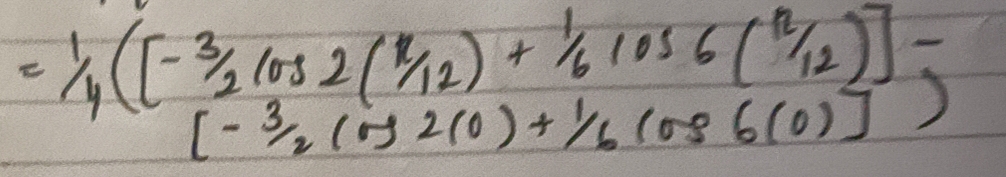 = 1/4 ([- 3/2 cos 2 (π/12) + 1/6 cos 6 (π/12)] -
[- 3/2 cos 2(0) + 1/6 cos 6(0)] )